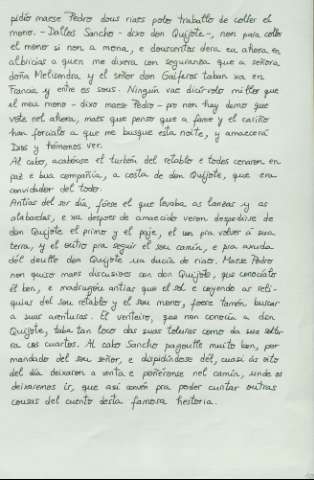 pidío maese Pedro dous riaes polo traballo de coller el
mono. - Dallos Sancho - dixo don Quijote -, non para coller
el mono si non a mona, e douscentos dera eu ahora en
albricias a quen me dixera con seguranza que a señora
doña Melisendra y el señor don Gaiferos taban xa en
Francia y entre os sous. - Ningún vac dicirvolo miller que
el meu mono - dixo maese Pedro - pro non hay demo que
vote nel ahora, mais que penso que a fame y el cariño
han forcialo a que me busque esta noite, y amaecerá
Dios y teémonos ver.
Al cabo, acabóuse el turbón del retablo e todos cenaron en
paz e bua compañía, a costa de don Quijote, que era
convidador del todo.
Antias del ser día, fóise el que levaba as lanzas y as
alabardas, e xa despois de amaecido veron despedirse de
don Quijote el primo y el paje, el un pra volver á sua
terra, y el outro pra seguir el sou camín, e pra axuda
dél deulle don Quijote ua ducia de riaes. Maese Pedro
non quiso mais discusiois con don Quijote, que conocíalo
él ben, e madrugóu antias que el sol e coyendo as reli-
quias del sou retablo y el sou mono, foise tamén buscar
a suas aventuras. El venteiro, que non conocía a don
Quijote, taba tan loco das suas tolurias como da sua
cos cuartos. Al cabo Sancho pagoulle muito ben, por
mandado del sou señor, e dispidíndose dél, cuasi ás oito
del día deixaron a venta e puñéronse nel camín, unde os
deixaremos ir, que así convén pra poder cuntar outras
cousas del cuento desta famosa hestoria.